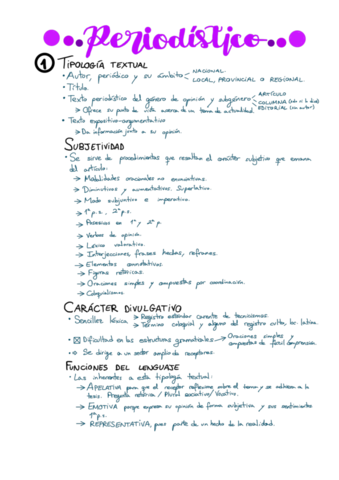 Periodístico
1 TIPOLOGÍA TEXTUAL
• Autor, periódico y su ámbito NACIONAL.
LOCAL, PROVINCIAL O REGIONAL.
• Título
• Texto periodístico del género de opinión y subgénero ARTÍCULO
COLUMNA
EDITORIAL (sin autor)
→ Ofrece su punto de vista acerca de un tema de actualidad.
• Texto expositivo-argumentativo
→ Da información junto a su opinión.
SUBJETIVIDAD
• Se sirve de procedimientos que resaltan el carácter subjetivo que emana
del artículo:
→ Modalidades oracionales no enunciativas.
→ Diminutivos y aumentativos. Superlativo.
→ Modo subjuntivo e imperativo.
→ 1ª p.s., 2ª p.s.
→ Posesivos en 1ª y 2ª p.
→ Verbos de opinión.
→ Léxico valorativo.
→ Interjecciones, frases hechas, refranes.
→ Elementos connotativos
→ Figuras retóricas.
→ Oraciones simples y compuestas por coordinación.
→ Coloquialismos
CARÁCTER DIVULGATIVO
• Sencillez léxica → Registro estándar carente de tecnicismos.
→ Término coloquial y alguno del registro culto, loc. latina.
• Dificultad en las estructuras gramaticales → Oraciones simples y
compuestas de fácil comprensión.
• Se dirige a un sector amplio de receptores.
FUNCIONES DEL LENGUAJE
• Las inherentes a esta tipología textual:
→ APELATIVA para que el receptor reflexione sobre el tema y se adhiera a la
tesis. Pregunta retórica / Plural sociativo / Vocativo.
→ EMOTIVA porque expresa su opinión de forma subjetiva y sus sentimientos
1ª p.s.
→ REPRESENTATIVA, pues parte de un hecho de la realidad.